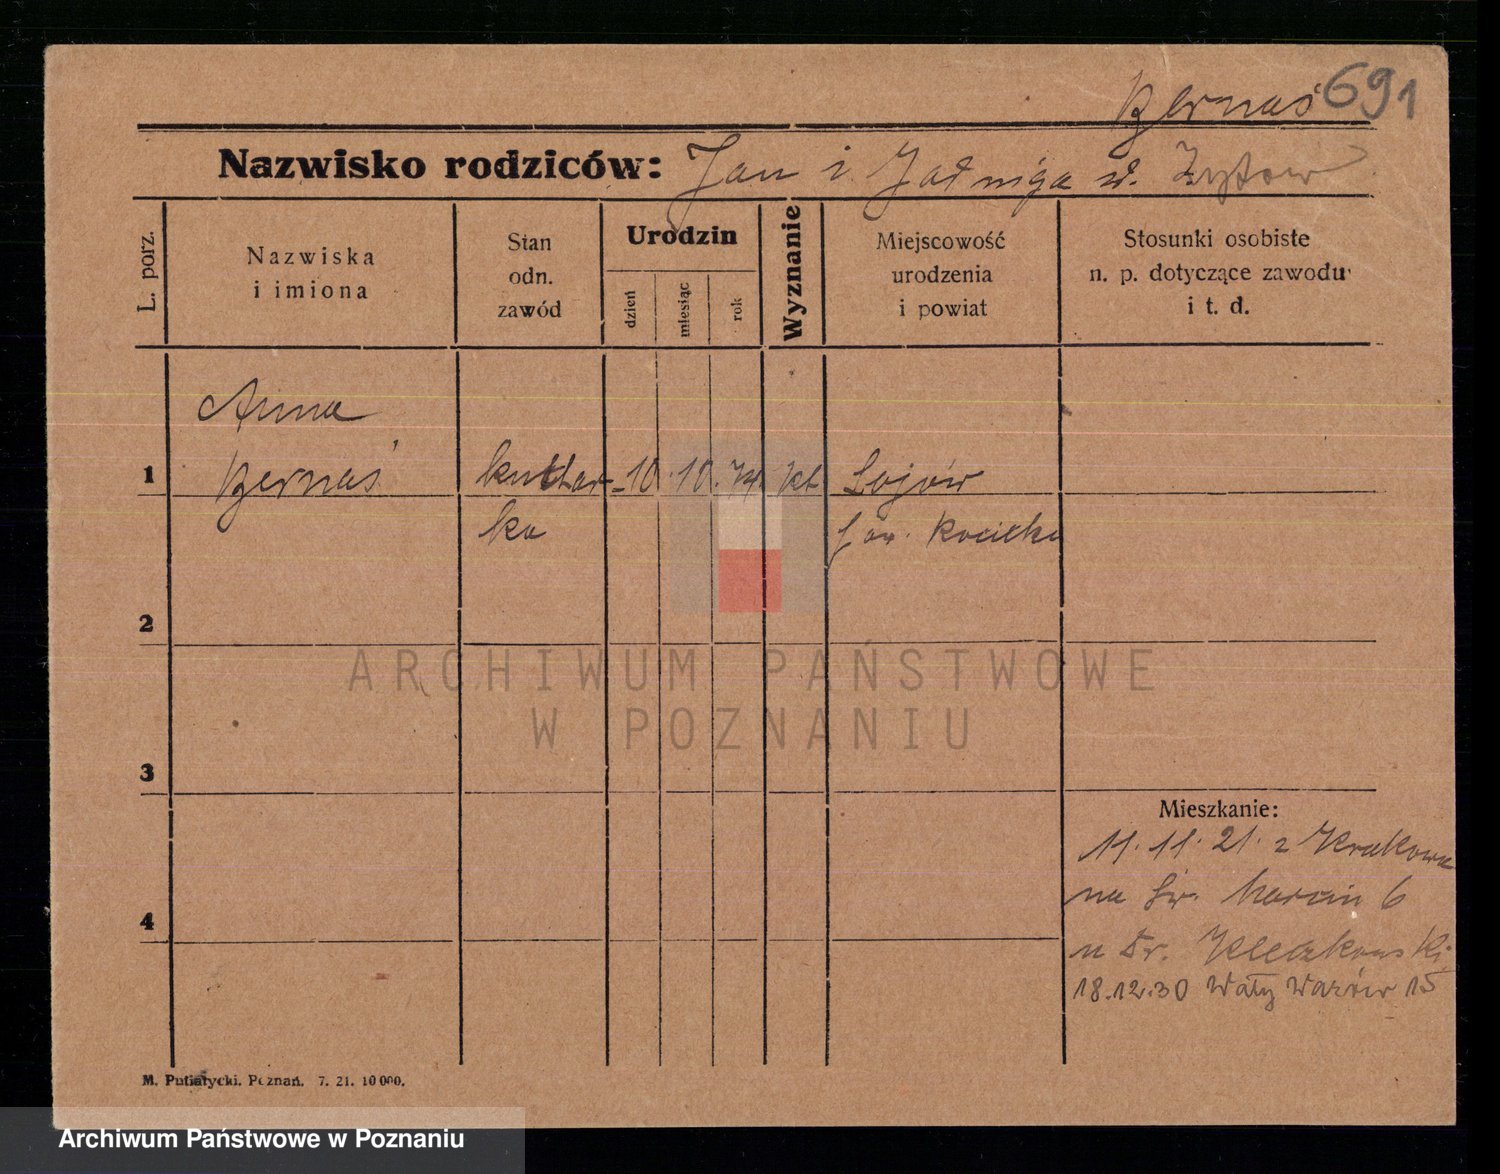 Bernaś 691
Nazwisko rodziców: Jan i Jadwiga d. Zytow
L. porz.
Nazwiska
i imiona
Stan
odn.
zawód
Urodzin
dzień
miesiąc
rok
Wyznanie
Miejscowość
urodzenia
i powiat
Stosunki osobiste
n. p. dotyczące zawodu
i t. d.
Anna
1 Bernaś kuchar- 10. 10. kt Łojów
ka pow.
2
ARCHIWUM PAŃSTWOWE
W POZNANIU
3
Mieszkanie:
11. 11. 21. z Krakowa
na Św. Marcin 6
4
u Dr. Kleczkowski
18.12.30 Wały Wazów 15
M. Putiatycki. Poznań. 7. 21. 10 000.
Archiwum Państwowe w Poznaniu